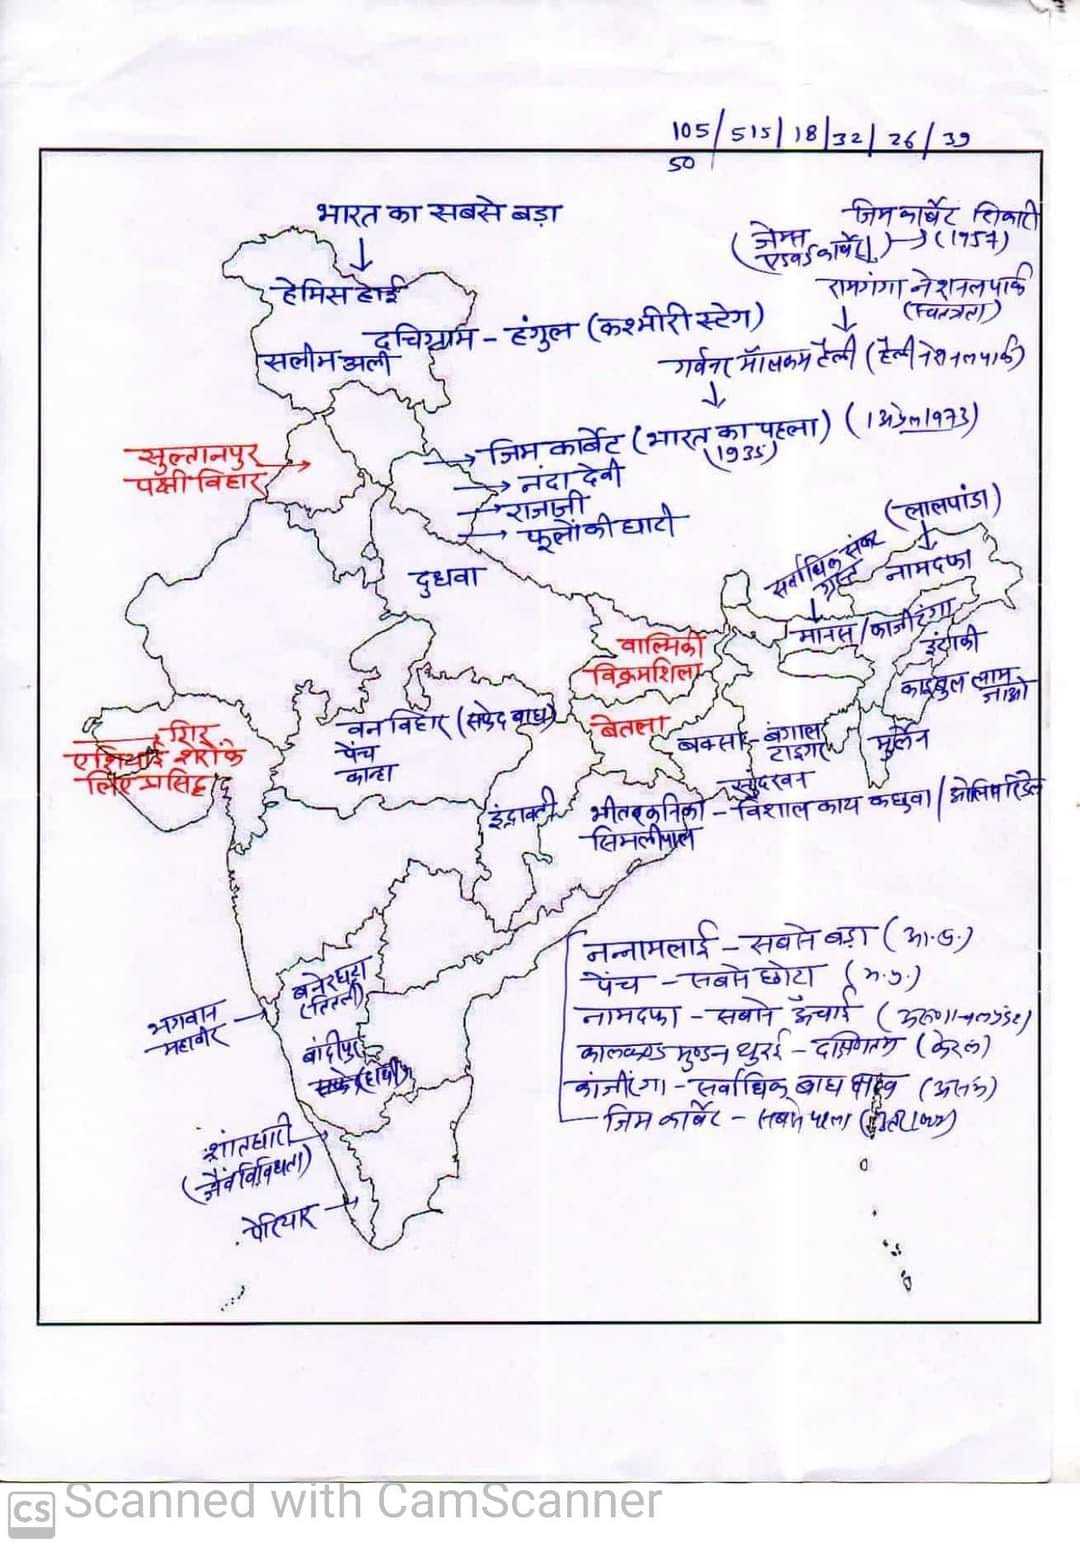 105/515/18/32/26/39
50
भारत का सबसे बड़ा
जिम कार्बेट शिकारी
(जेम्स
एडवर्ड कार्बेट) → (1957)
हेमिस हाई
रामगंगा नेशनल पार्क
(स्वतंत्रता)
दचिग्राम - हंगुल (कश्मीरी स्टेग)
सलीम अली
गर्वनर मॉलकम हैली (हैली नेशनल पार्क)
जिम कार्बेट (भारत का पहला) (1 अप्रेल 1973)
(1935)
सुल्तानपुर
पक्षी विहार
नंदा देवी
राजाजी
फूलों की घाटी
(लालपांडा)
दुधवा
सर्वाधिक संकट
ग्रस्त
नामदफा
मानस / काजीरंगा
वाल्मिकी
विक्रमशिला
इंटाकी
काइबुल लाम
जाओ
वन विहार (सफेद बाघ)
पेंच
कान्हा
बेतला
बक्सा - बंगाल
टाइगर
मुर्लेन
गिर
एशियाई शेरों के
लिए प्रसिद्ध
सुंदरवन
इंद्रावती
भीतरकनिका - विशाल काय कछुवा / ओलिव रिडले
सिमलीपाल
नन्नामलाई - सबसे बड़ा (आ.ऊ.)
पेंच - सबसे छोटा (म.प्र.)
नामदफा - सबसे ऊँचाई (अरूणाचल प्रदेश)
बनेरघटा
(तितली)
भगवान
महावीर
बांदीपुर
(हाथी)
मुण्डन थुरई - दक्षिणतम (केरल)
कांजीरंगा - सर्वाधिक बाघ घनत्व (असम)
जिम कार्बेट - सबसे पहला (उत्तराखण्ड)
शांतघाटी
(जैव विविधता)
पेरियार
CS Scanned with CamScanner